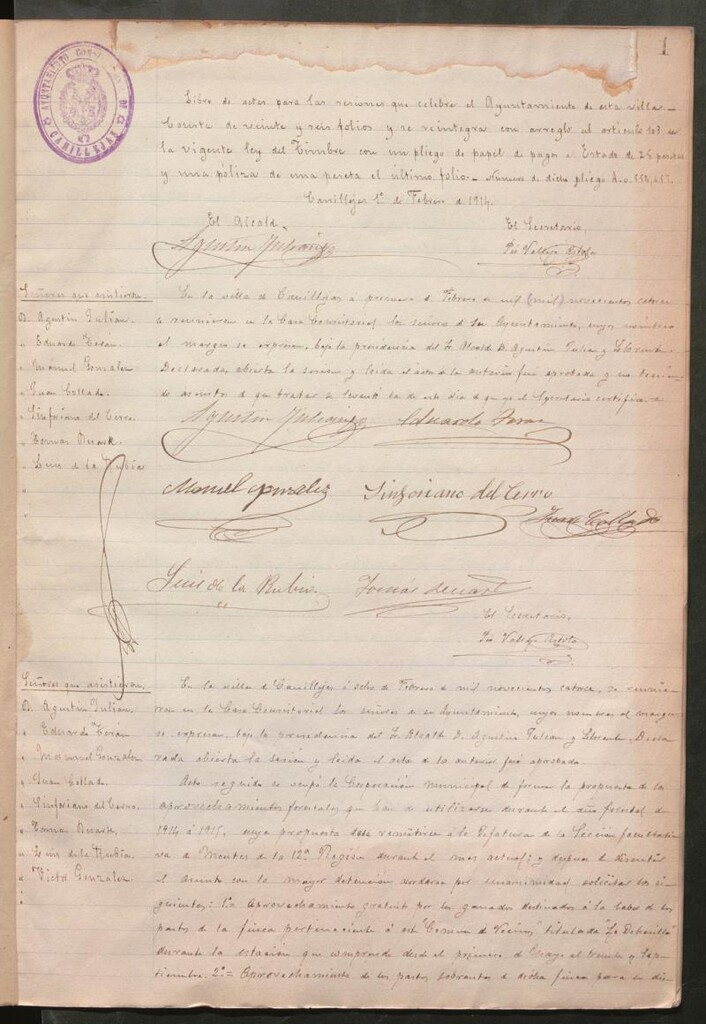 1
AYUNTAMIENTO CONSTITUCIONAL DE CANILLEJAS
Libro de actas para las sesiones que celebre el Ayuntamiento de esta villa.
Consta de veinte y seis folios y se reintegra con arreglo al articulo 107 de
la vigente ley del Timbre con un pliego de papel de pagos al Estado de 25 pesetas
y una póliza de una peseta el último folio.- Número de dicho pliego A.o.
Canillejas 1º de Febrero de 1914.
El Alcalde. El Secretario,
Agustin Julian Pio Vallejo
Señores que asistieron.
D. Agustin Julian.
" Eduardo Teran.
" Manuel Gonzalez
" Juan Collado.
" Sinforiano del Cerro.
" Tomas Duart.
" Luis de la Rubia
En la villa de Canillejas á primero de Febrero de mil (mil) novecientos catorce
se reunieron en la Casa Consistorial los señores de su Ayuntamiento, cuyos nombres
al margen se expresan, bajo la presidencia del Sr. Alcalde D. Agustin Julian y Llorente.
Declarada abierta la sesión y leida el acta de la anterior fué aprobada y no
de asuntos de que tratar se levantó la de este dia de que el Secretario certifica.
Agustin Julian Eduardo Teran
Manuel Gonzalez Sinforiano del Cerro
Juan Collado
Luis de la Rubia Tomás Duart
El Secretario,
Pio Vallejo
Señores que asistieron.
D. Agustin Julian.
" Eduardo Teran
" Manuel Gonzalez
" Juan Collado.
" Sinforiano del Cerro.
" Tomas Duart.
" Luis de la Rubia.
" Victor Gonzalez
En la villa de Canillejas á ocho de Febrero de mil novecientos catorce, se reunie-
ron en la Casa Consistorial los señores de su Ayuntamiento, cuyos nombres al margen
se expresan, bajo la presidencia del Sr. Alcalde D. Agustin Julian y Llorente. Decla-
rada abierta la sesión y leida el acta de la anterior fué aprobada.
Acto seguido se ocupó la Corporación municipal de formar la propuesta de los
aprovechamientos forestales que han de utilizarse durante el año forestal de
1914 á 1915, cuya propuesta debe remitirse á la Jefatura de la Sección facultati-
va de Montes de la 12ª Región durante el mes actual; y despues de discutido
el asunto con la mayor detención acordaron por unanimidad solicitar los si-
guientes: 1º Aprovechamiento gratuito por los ganados destinados á la labor de los
pastos de la finca perteneciente á este "Comun de Vecinos" titulada
durante la estación que comprende desde el primero de Mayo al treinta y Sep-
tiembre. 2º= Aprovechamiento de los pastos sobrantes de dicha finca para su dis-